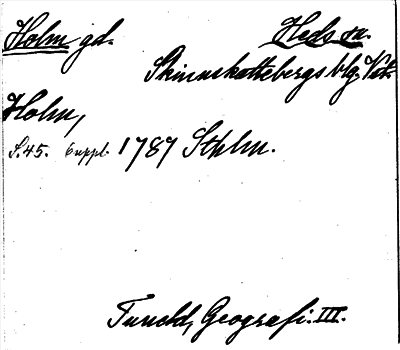 Holm gd. Heds sn.
Skinnskattebergs blg. Vstm.
Holm,
S. 45. Cuppl. 1787 Sthlm.
Tuneld, Geografi. III.